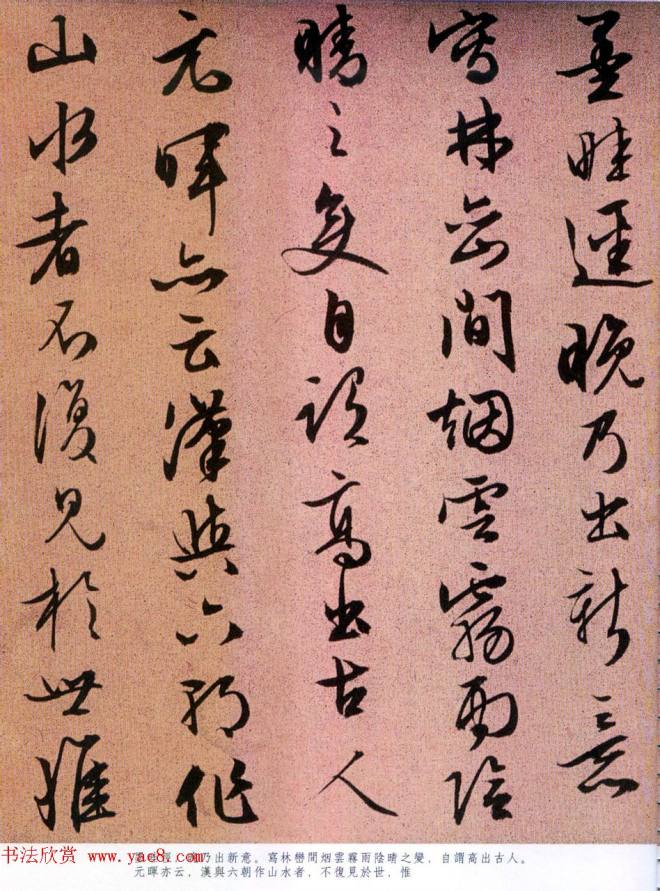 墨畦逕晚乃出新意
寫林巒間烟雲霧雨陰
晴之變自謂高出古人
元暉亦云漢與六朝作
山水者不復見於世惟
书法欣赏 www.yac8.com
乃出新意。寫林巒間烟雲霧雨陰晴之變,自謂高出古人。
元暉亦云,漢與六朝作山水者,不復見於世,惟